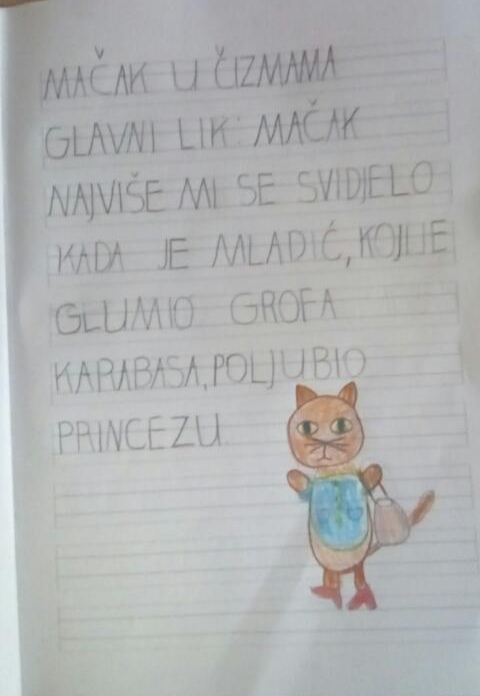 MAČAK U ČIZMAMA
GLAVNI LIK: MAČAK
NAJVIŠE MI SE SVIDJELO
KADA JE MLADIĆ, KOJI JE
GLUMIO GROFA
KARABASA, POLJUBIO
PRINCEZU.